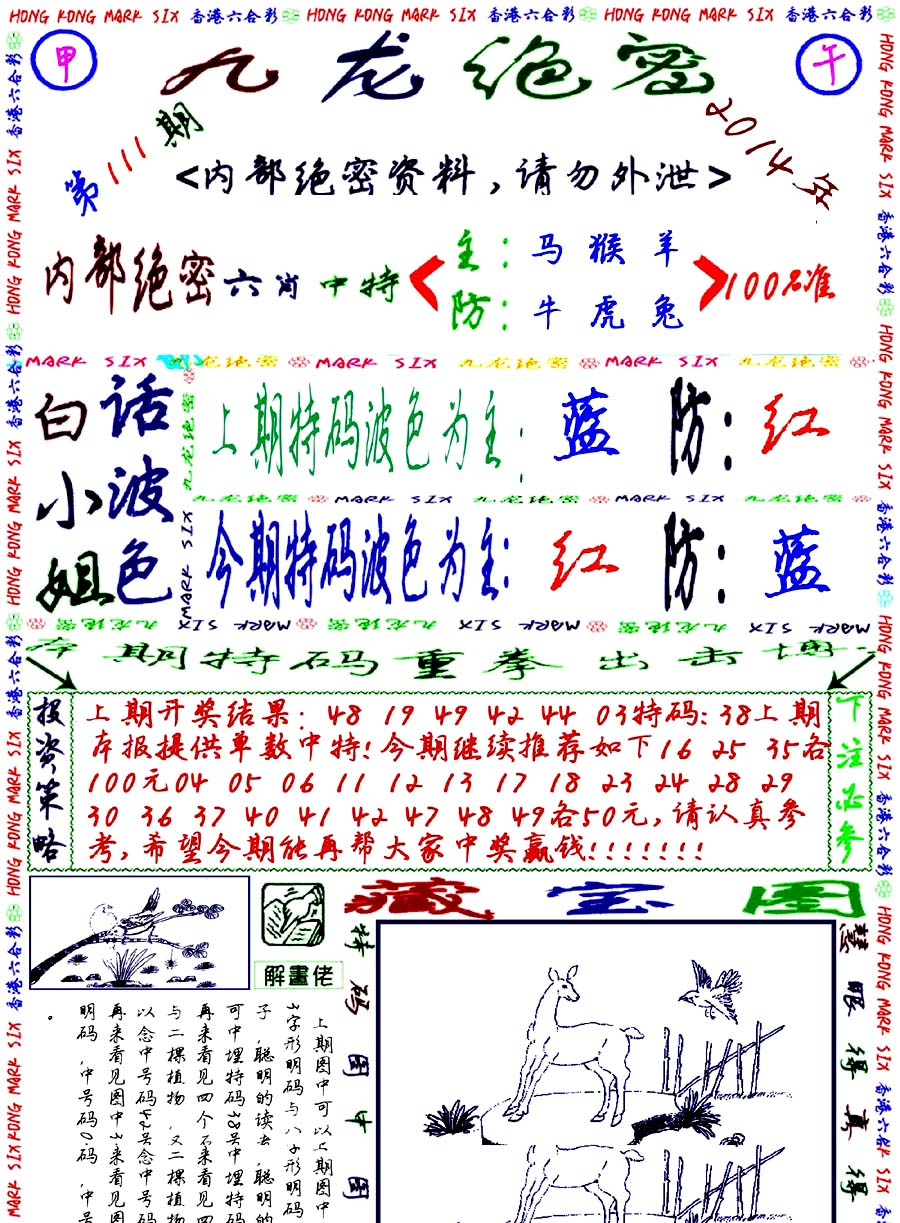 HONG KONG MARK SIX 香港六合彩 HONG KONG MARK SIX 香港六合彩 HONG KONG MARK SIX 香港六合彩
甲
九龙绝密
午
第111期
2014年
<内部绝密资料,请勿外泄>
内部绝密六肖中特
主:马猴羊
防:牛虎兔
100%准
MARK SIX 九龙绝密 MARK SIX 九龙绝密 MARK SIX 九龙绝密
白小姐
话波色
上期特码波色为主:蓝 防:红
九龙绝密 MARK SIX 九龙绝密 MARK SIX 九龙绝密
今期特码波色为主:红 防:蓝
九龙绝密 MARK SIX 九龙绝密 MARK SIX 九龙绝密 MARK SIX
本期特码重拳出击博
投资策略
上期开奖结果:48 19 49 42 44 03特码:38上期
本报提供单数中特!今期继续推荐如下16 25 35各
100元04 05 06 11 12 13 17 18 23 24 28 29
30 36 37 40 41 42 47 48 49各50元,请认真参
考,希望今期能再帮大家中奖赢钱!!!!!!!
下注必参
藏宝图
解畫佬
特码图中图
慧眼得真得
上期图中可以上期图中
子,聪明的读去,聪明的
可中埋特码38号中埋特码
再来看见四个石来看见四
与二棵植物,又二棵植物
再来看见图中3来看见图
明码,中号码0码,中号